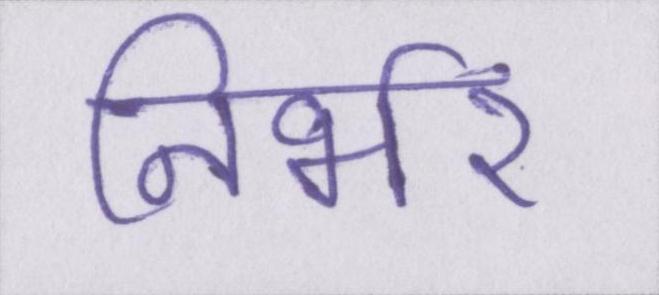 निर्भर